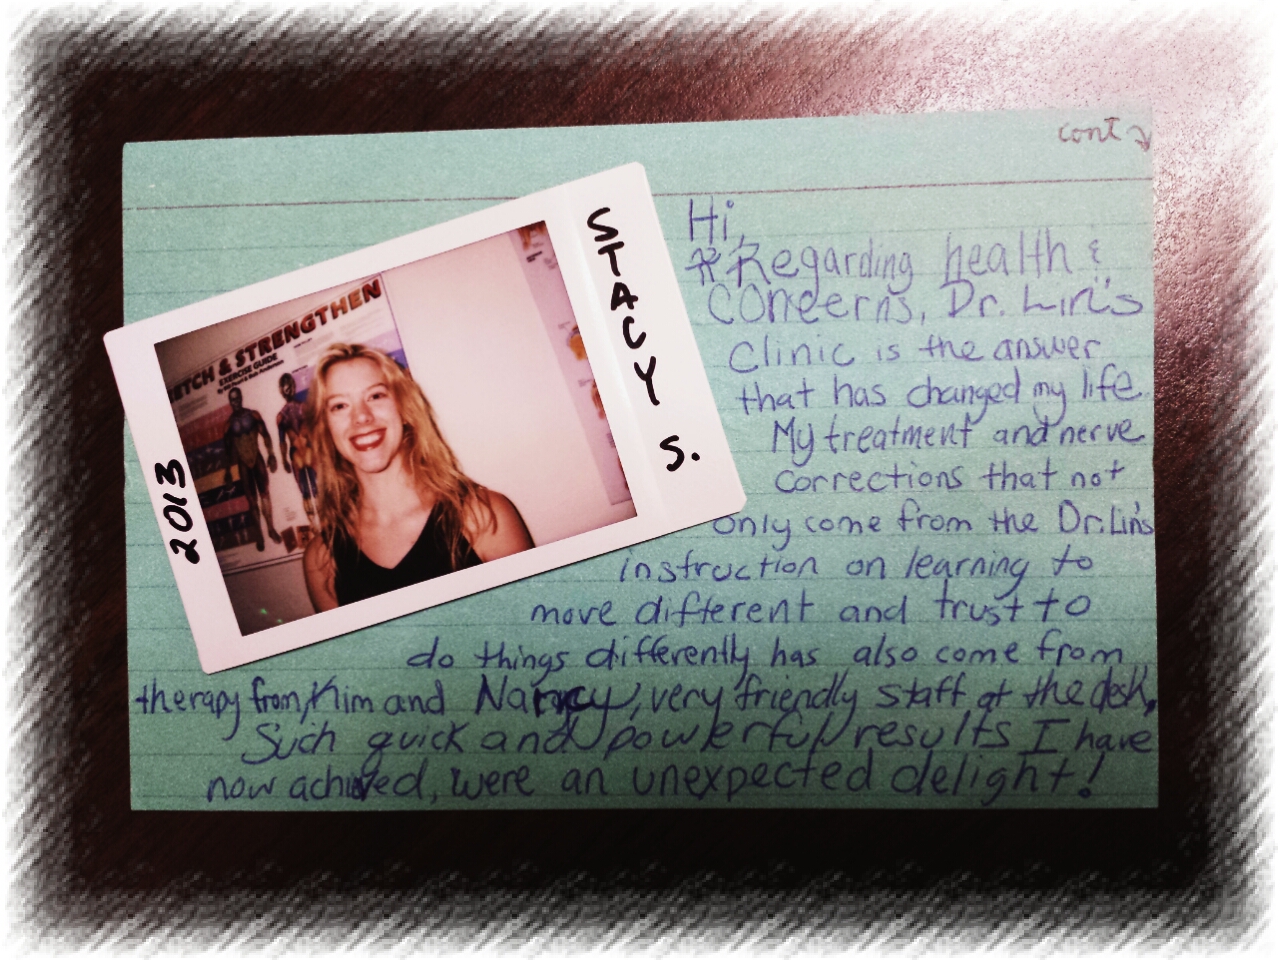 cont
STACY S.
2013
ETCH & STRENGTHEN
EXERCISE GUIDE
Hi,
Regarding health &
concerns, Dr. Lin's
Clinic is the answer
that has changed my life.
My treatment and nerve
corrections that not
only come from the Dr. Lin's
instruction on learning to
move different and trust to
do things differently has also come from
therapy from Kim and Nancy, very friendly staff at the desk.
Such quick and powerful results I have
now achieved, were an unexpected delight!